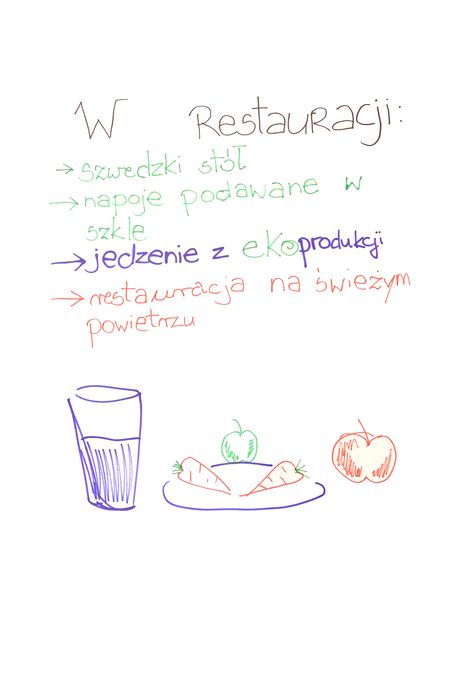 W Restauracji:
→ szwedzki stół
→ napoje podawane w
szkle
→ jedzenie z ekoprodukcji
→ restauracja na świeżym
powietrzu